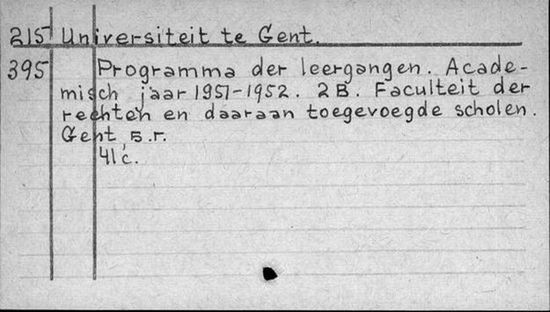 215 Universiteit te Gent.
395 Programma der leergangen. Acade-
misch jaar 1951-1952. 2B. Faculteit der
rechten en daaraan toegevoegde scholen.
Gent, s.r.
41 c.